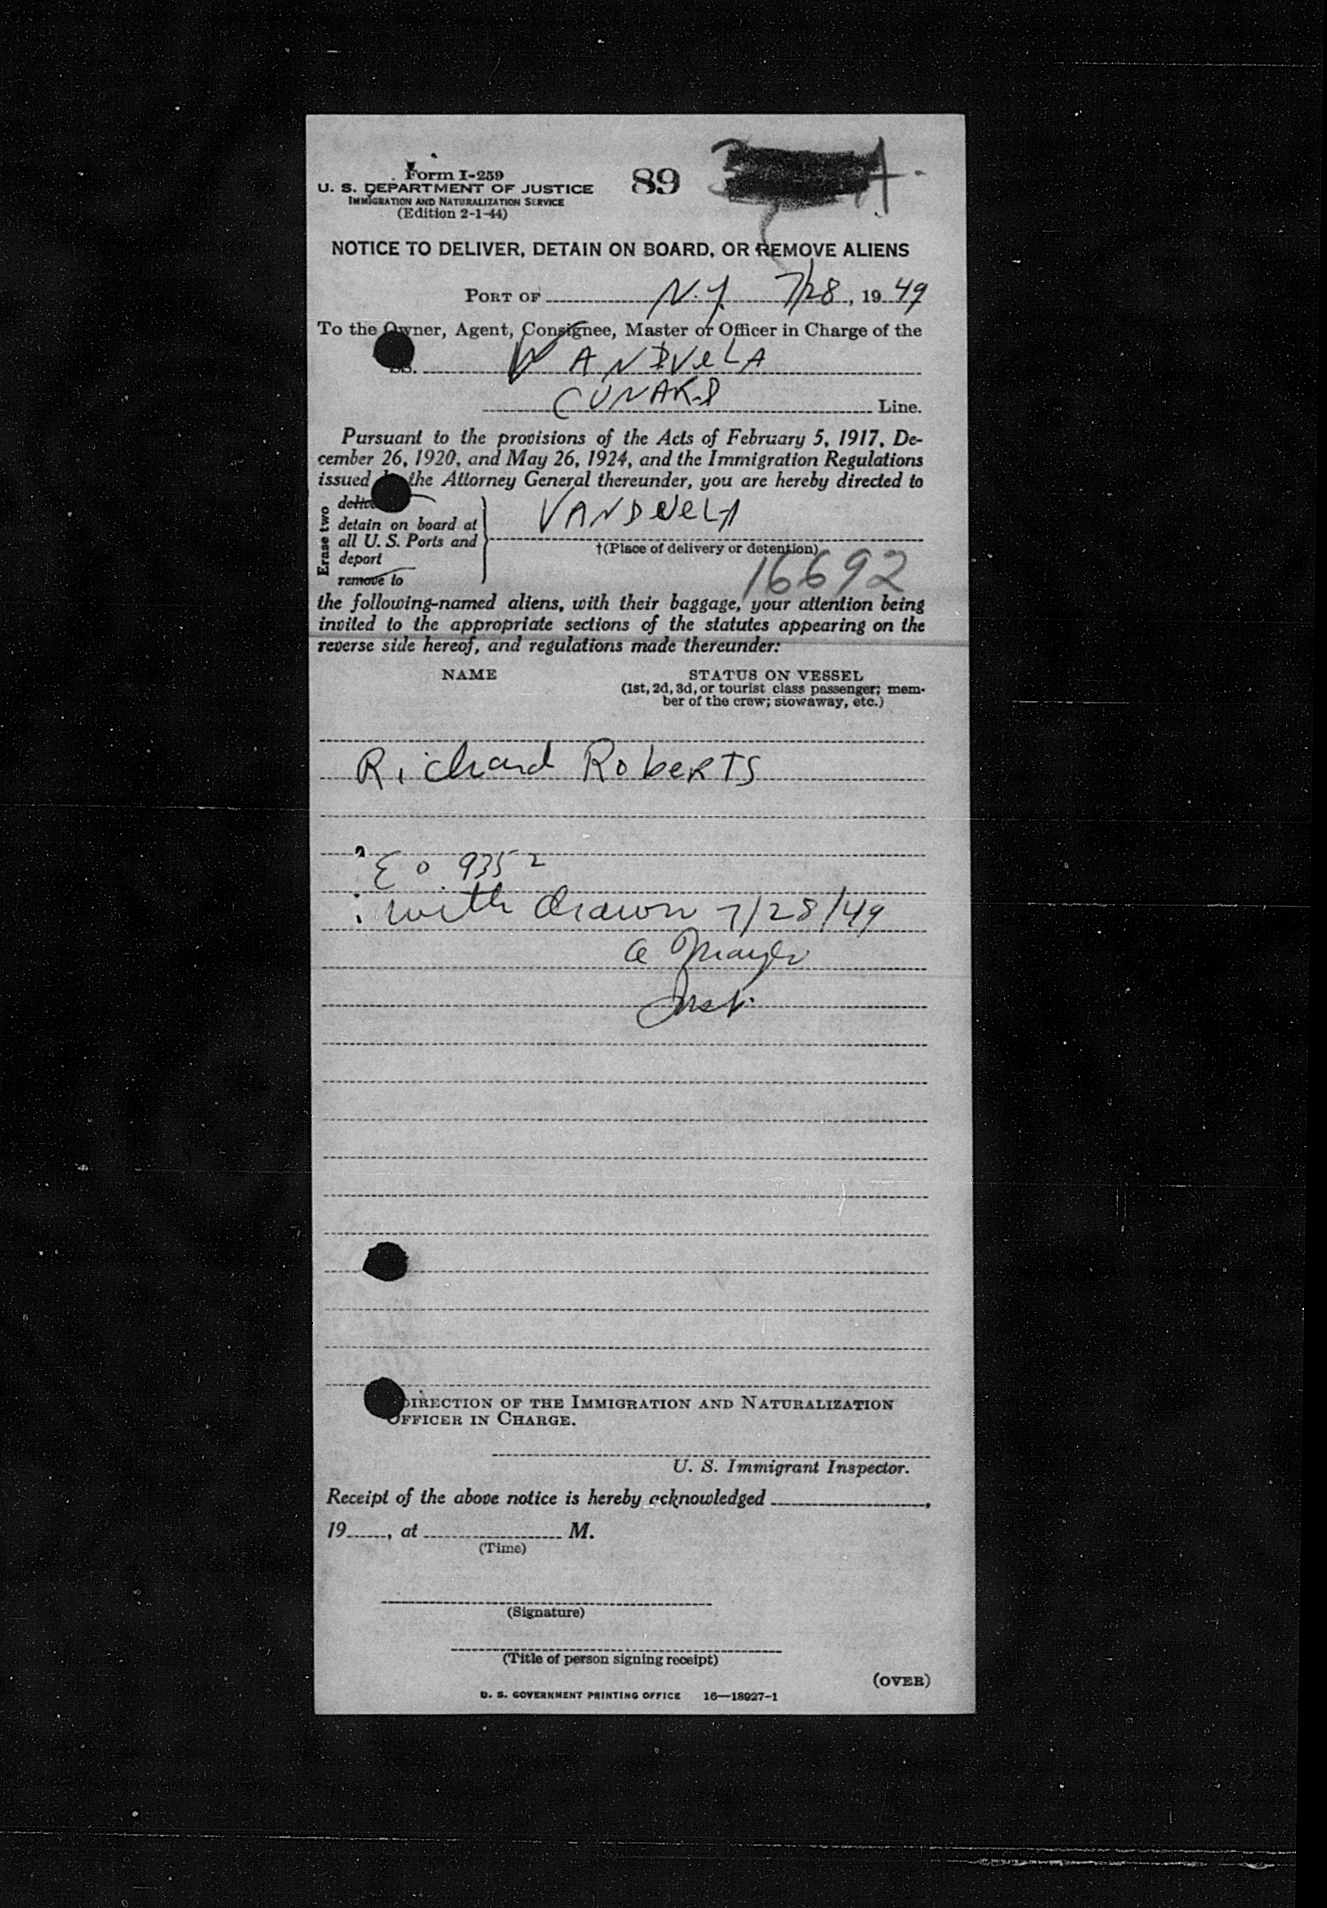 Form I-259
U. S. DEPARTMENT OF JUSTICE
IMMIGRATION AND NATURALIZATION SERVICE
(Edition 2-1-44)
89
NOTICE TO DELIVER, DETAIN ON BOARD, OR REMOVE ALIENS
PORT OF N.Y. 7/28, 1949
To the Owner, Agent, Consignee, Master or Officer in Charge of the
SS. VANDVeLA
CUNARD Line.
Pursuant to the provisions of the Acts of February 5, 1917, De-
cember 26, 1920, and May 26, 1924, and the Immigration Regulations
issued the Attorney General thereunder, you are hereby directed to
Erase two
deliver
detain on board at
all U. S. Ports and
deport
remove to
VANDVeLA
†(Place of delivery or detention)
16692
the following-named aliens, with their baggage, your attention being
invited to the appropriate sections of the statutes appearing on the
reverse side hereof, and regulations made thereunder:
NAME STATUS ON VESSEL
(1st, 2d, 3d, or tourist class passenger; mem-
ber of the crew; stowaway, etc.)
Richard Roberts
EO 9352
withdrawn 7/28/49
Insp.
DIRECTION OF THE IMMIGRATION AND NATURALIZATION
OFFICER IN CHARGE.
U. S. Immigrant Inspector.
Receipt of the above notice is hereby acknowledged ,
19 , at M.
(Time)
(Signature)
(Title of person signing receipt)
(OVER)
U. S. GOVERNMENT PRINTING OFFICE 16—18927-1